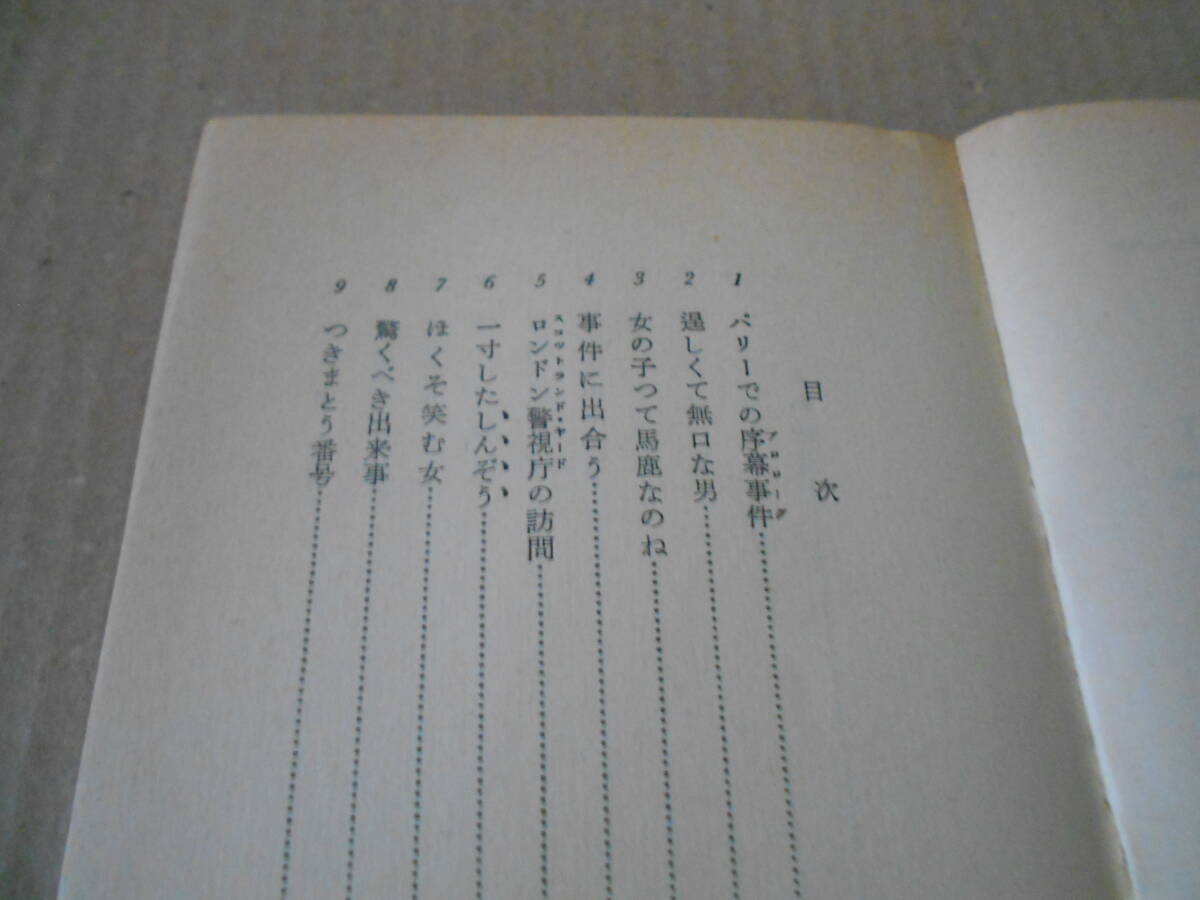 目次
1 パリーでの序幕事件
プロローグ
2 逞しくて無口な男
3 女の子つて馬鹿なのね
4 事件に出合う
5 ロンドン警視庁の訪問
スコットランド・ヤード
6 一寸したしんぞう
7 ほくそ笑む女
8 驚くべき出来事
9 つきまとう番号